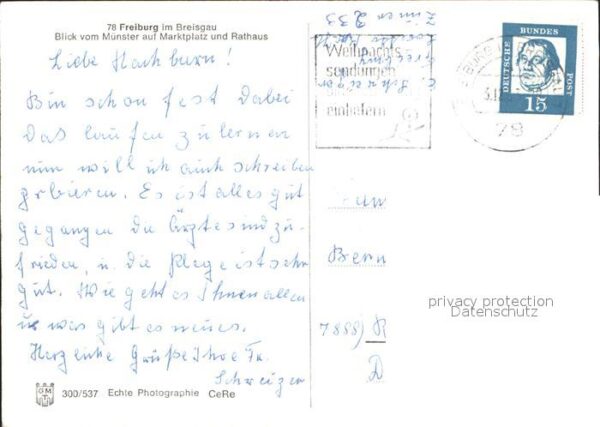 78 Freiburg im Breisgau
Blick vom Münster auf Marktplatz und Rathaus
Liebe Nachbarn!
Bin schon fest dabei
das laufen zu lernen
nun will ich auch schreiben
probieren. Es ist alles gut
gegangen die Ärzte sind zu-
frieden, u. die Pflege ist sehr
gut. Wie geht es Ihnen allen
u was gibt es neues.
Herzliche Grüße Ihre Fr.
Schweizer
300/537 Echte Photographie CeRe
Zimmer 233
Weihnachts
sendungen
einliefern
DEUTSCHE BUNDES POST
15
78
Bern
7888) R
D
privacy protection
Datenschutz